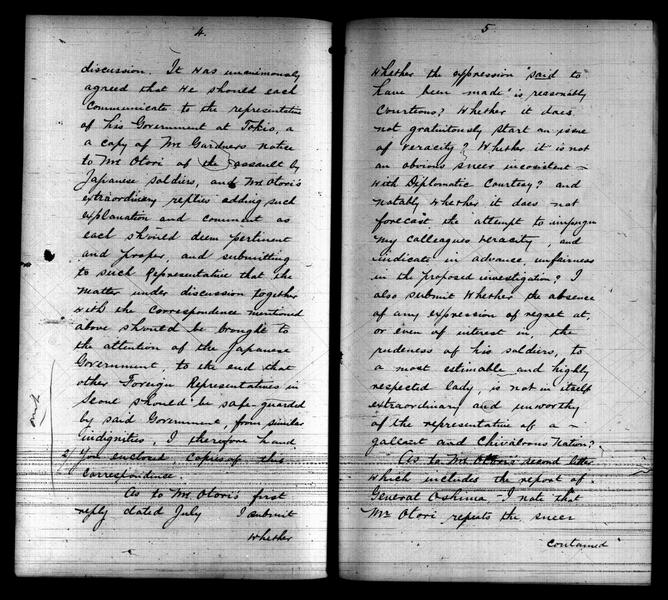 4.
discussion. It was unanimously
agreed that we should each
communicate to the representative
of his Government at Tokio, a
a copy of Mr Gardners notice
to Mr Otori of the assault by
Japanese soldiers, and Mr Otori's
extraordinary replies adding such
explanation and comment as
each should deem pertinent
and proper, and submitting
to such Representative that the
matter under discussion together
with the correspondence mentioned
above should be brought to
the attention of the Japanese
Government, to the end that
other Foreign Representatives in
Seoul should be safe-guarded
by said Government, from similar
indignities, I therefore hand
2/ You enclosed, copies of this
correspondence.
As to Mr Otori's first
reply dated July I submit
whether
5
whether the expression "said to
have been made" is reasonably
courteous? Whether it does
not gratuitously start an issue
of veracity? Whether it is not
an obvious sneer inconsistent
with Diplomatic Courtesy? and
notably whether it does not
forecast the attempt to impugn
my colleagues veracity, and
indicate in advance, unfairness
in the proposed investigation? I
also submit whether the absence
of any expression of regret at,
or even of interest in the
rudeness of his soldiers, to
a most estimable and highly
respected lady, is not in itself
extraordinary and unworthy
of the representative of a
gallant and Chivalrous Nation?
As to Mr Otori's second letter
which includes the report of
General Oshima - I note that
Mr Otori repeats the sneer
contained